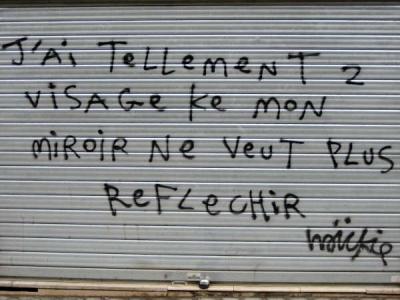 J'Ai TELLEMENT 2
ViSAGE KE MON
MiROiR NE VEUT PLUS
REFLECHiR